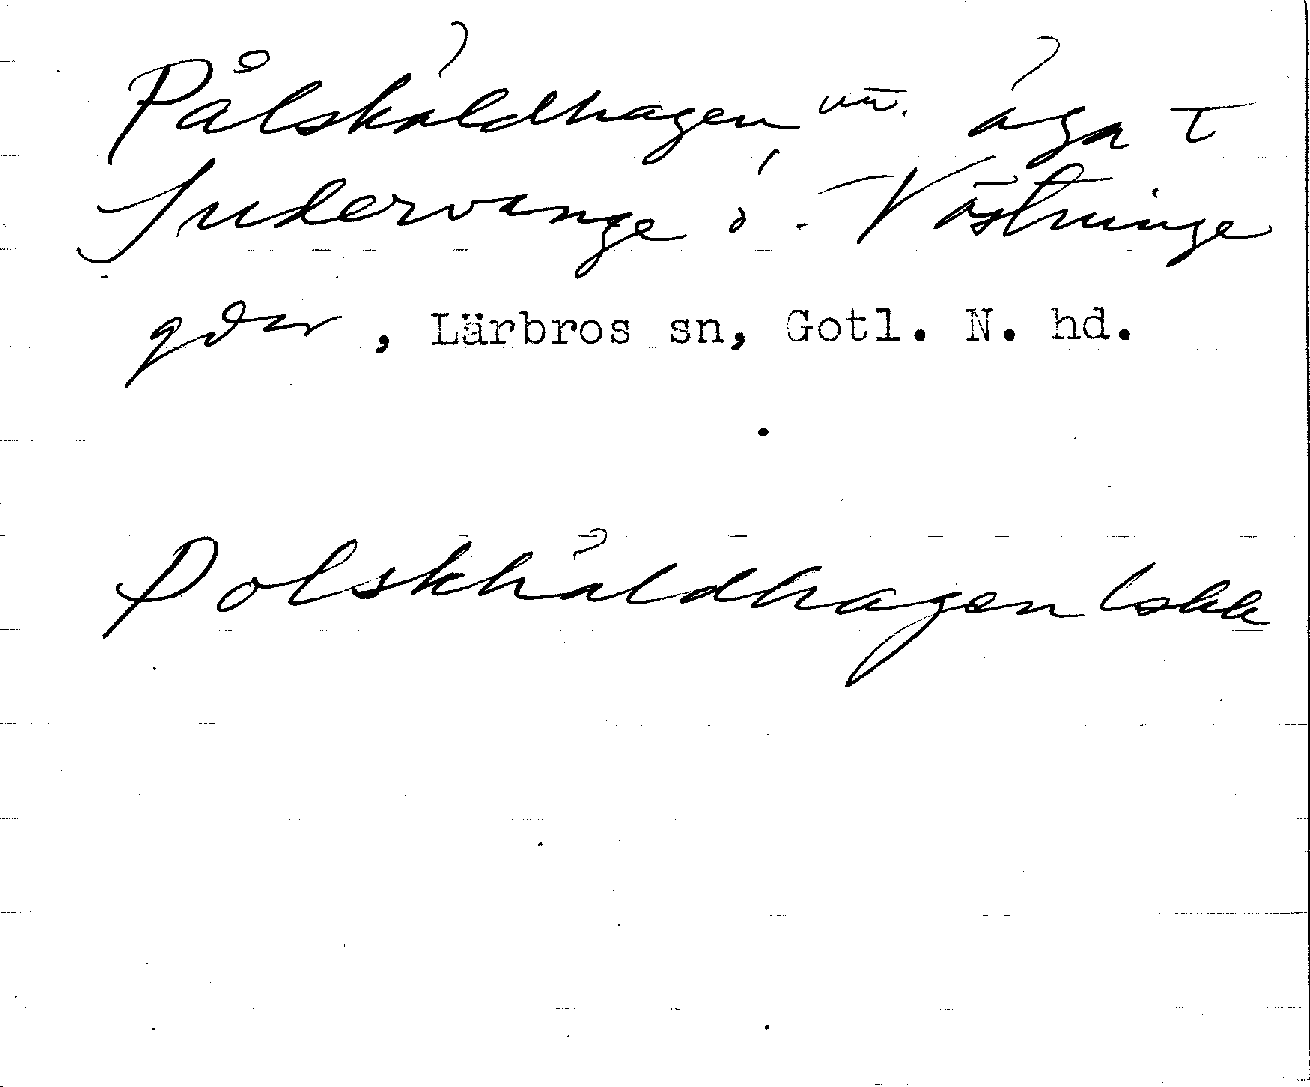 Pålskåldhagen un. åga t
Sudervange i Västninge
gdar, Lärbros sn, Gotl. N. hd.
Polskhåldhagen